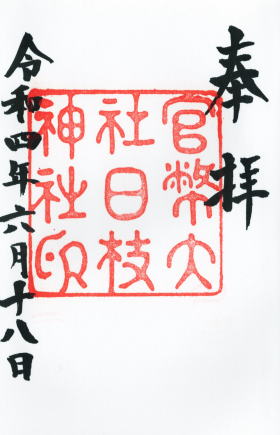 奉拝
官幣大
社日枝
神社印
令和四年六月十八日